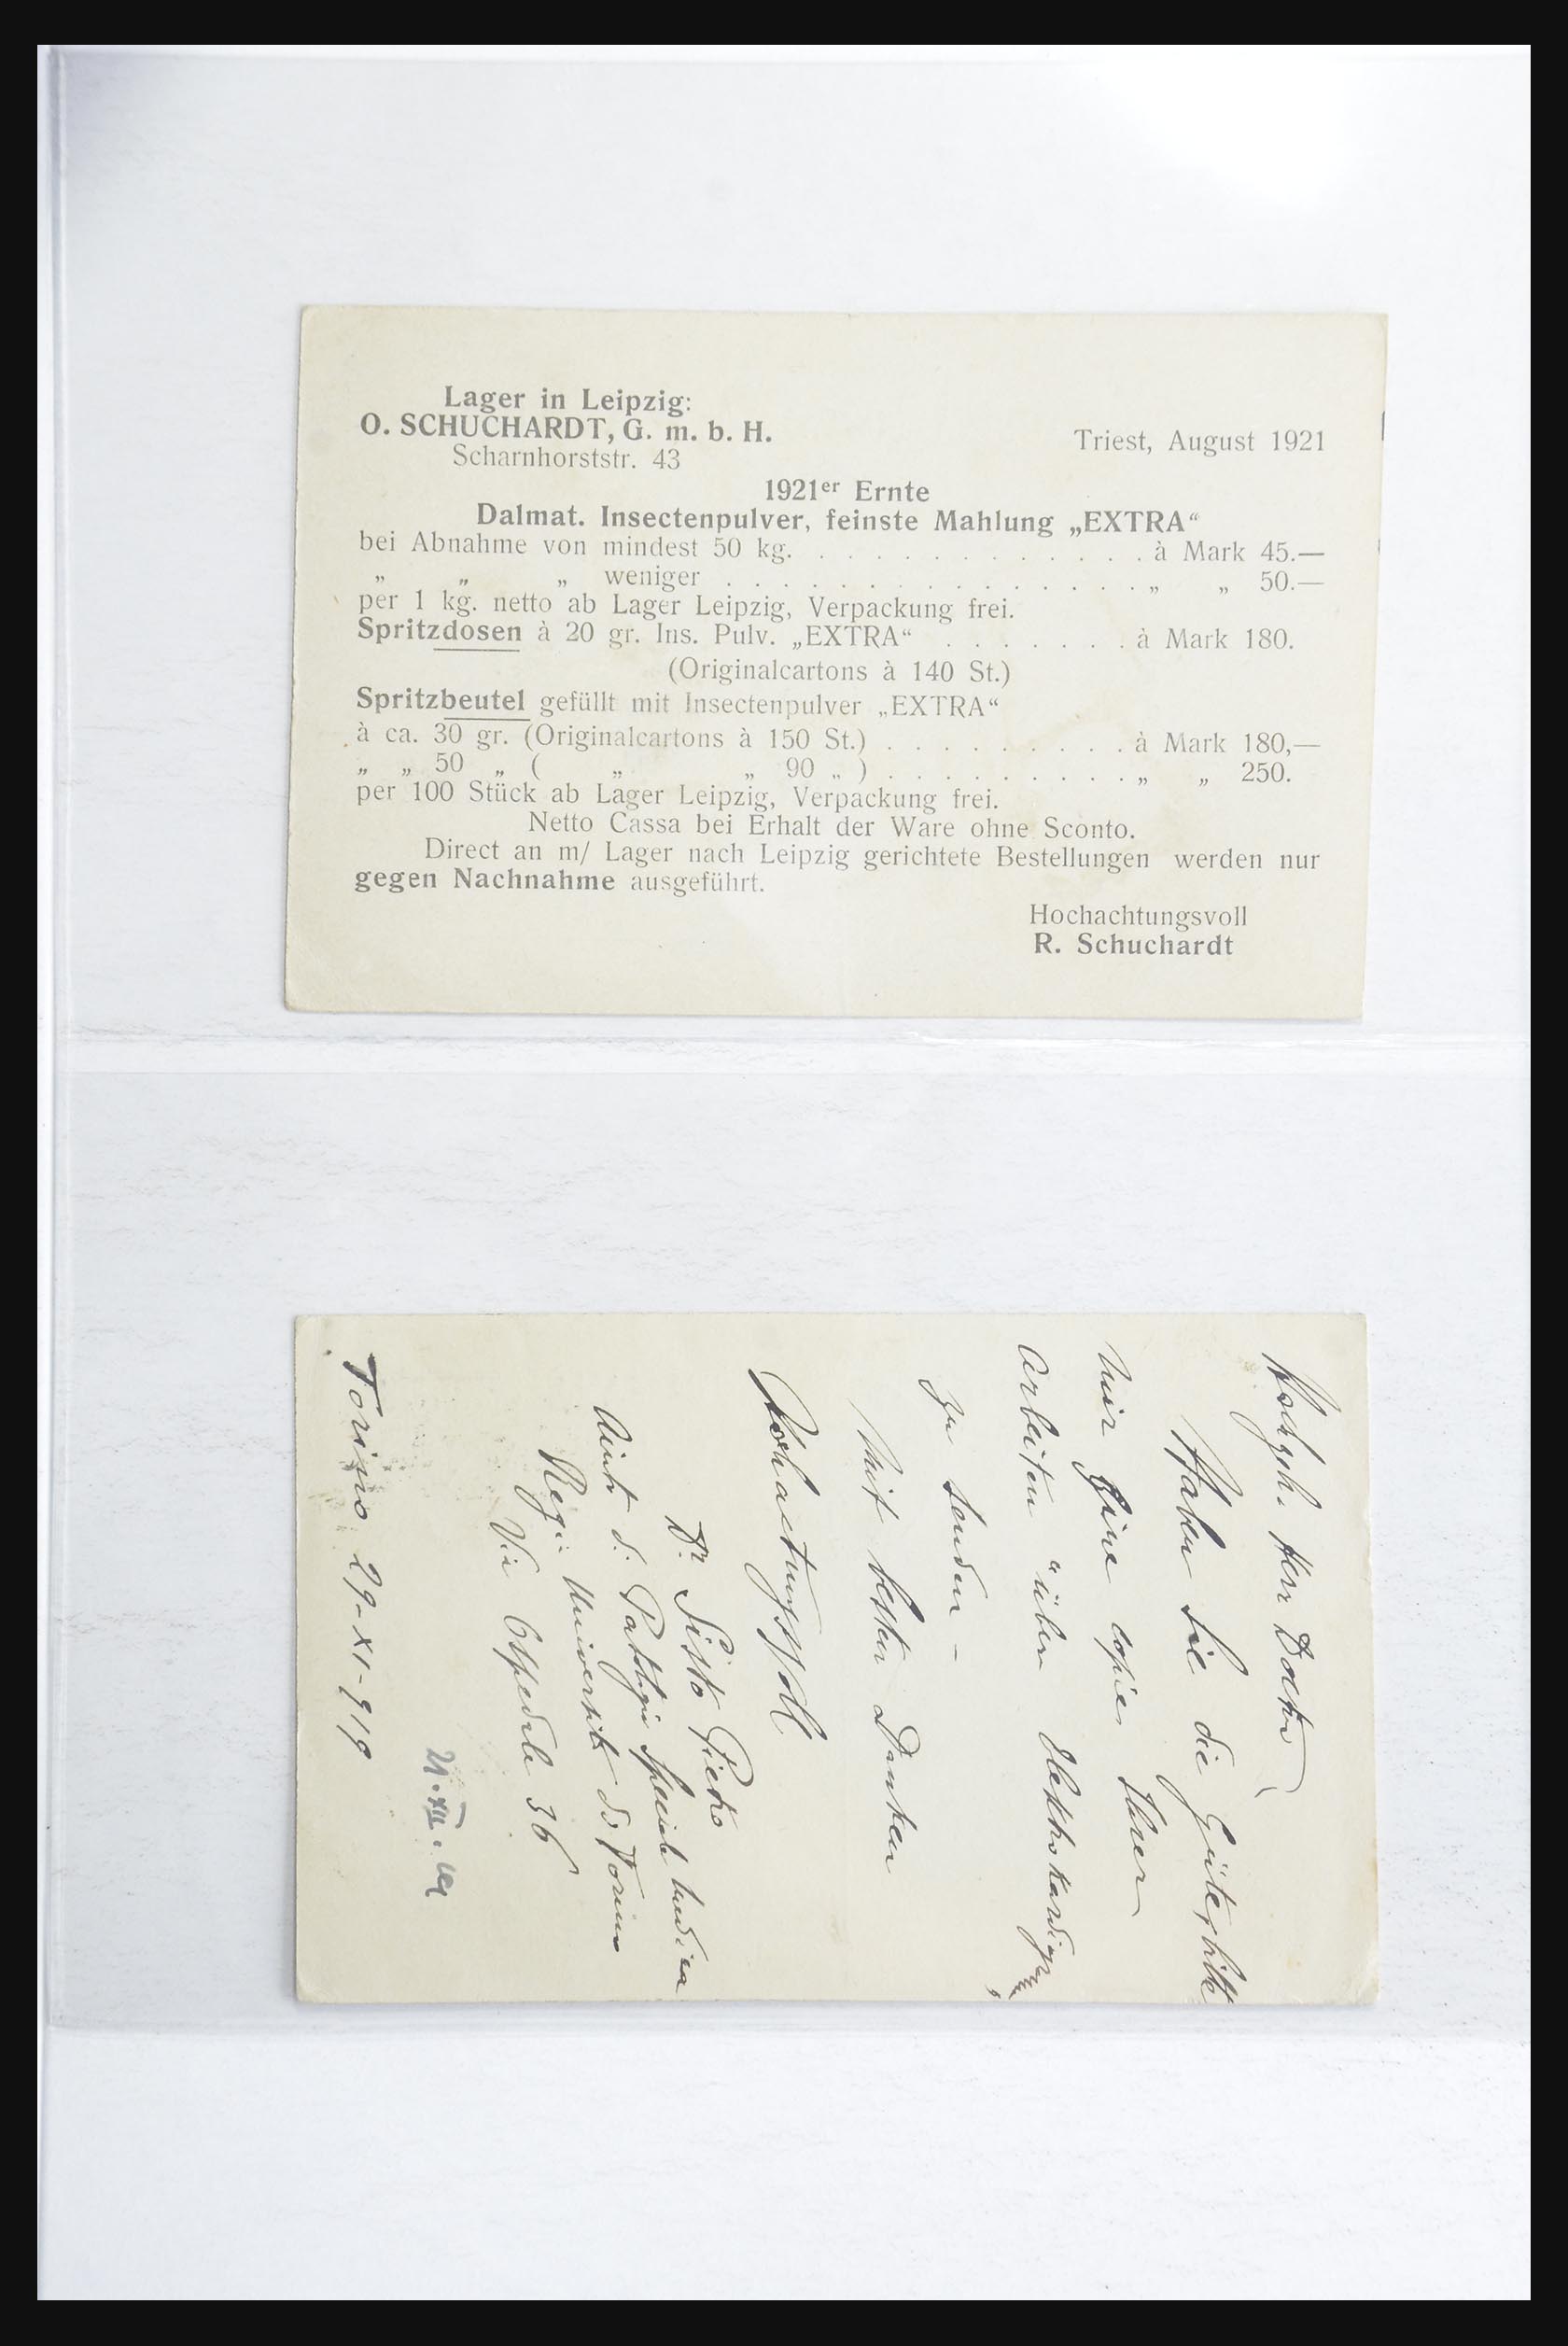 Lager in Leipzig:
O. SCHUCHARDT, G. m. b. H.
Scharnhorststr. 43
Triest, August 1921
1921er Ernte
Dalmat. Insectenpulver, feinste Mahlung „EXTRA“
bei Abnahme von mindest 50 kg. . . . . . . . . . . . . . à Mark 45.—
„ „ „ weniger . . . . . . . . . . . . . . . . „ „ 50.—
per 1 kg. netto ab Lager Leipzig, Verpackung frei.
Spritzdosen à 20 gr. Ins. Pulv. „EXTRA“ . . . . . . . à Mark 180.
(Originalcartons à 140 St.)
Spritzbeutel gefüllt mit Insectenpulver „EXTRA“
à ca. 30 gr. (Originalcartons à 150 St.) . . . . . . . . . . à Mark 180,—
„ „ 50 „ ( „ „ 90 „ ) . . . . . . . . . . „ „ 250.
per 100 Stück ab Lager Leipzig, Verpackung frei.
Netto Cassa bei Erhalt der Ware ohne Sconto.
Direct an m/ Lager nach Leipzig gerichtete Bestellungen werden nur
gegen Nachnahme ausgeführt.
Hochachtungsvoll
R. Schuchardt
Hochgeh. Herr Doktor
Haben Sie die Güte, bitte
mir Eine copie Ihrer
Arbeiten "über
zu senden -
Mit besten Danken
Dr Sisto Pietro
Aiuto di Patologia Speciale medica
Regia Università di Torino
Via Ospedale 36
Torino 29-XI-919
21.XII.